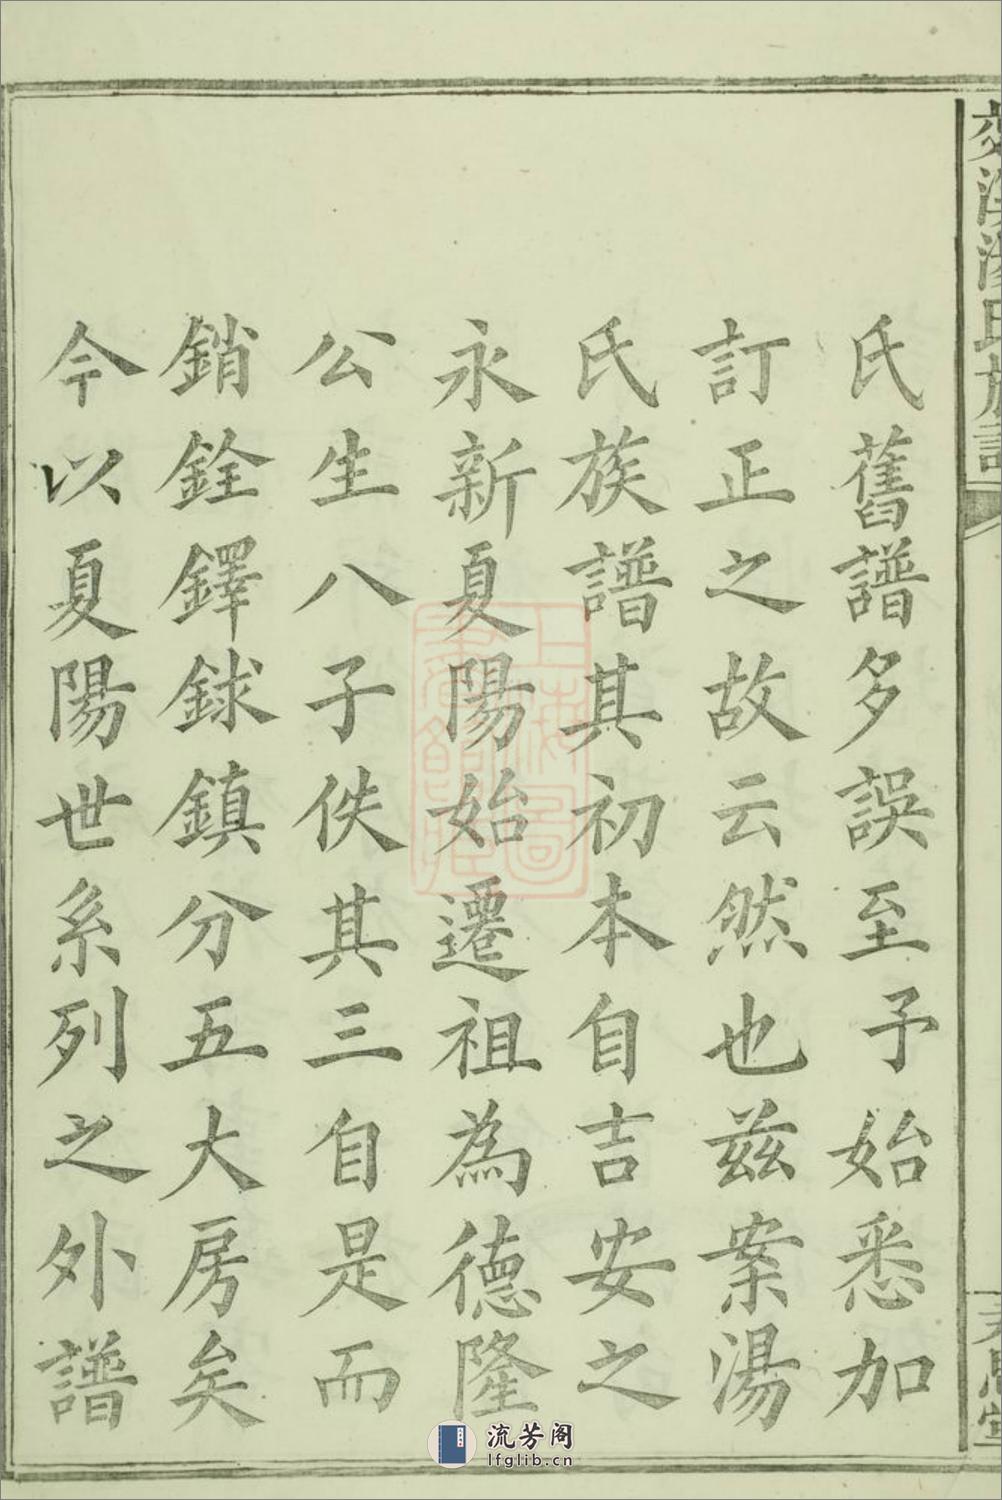 氏舊譜多誤至予始悉加
訂正之故云然也茲案湯
氏族譜其初本自吉安之
永新夏陽始遷祖為德隆
公生八子佚其三自是而
銷銓鐸銶鎮分五大房矣
今以夏陽世系列之外譜
流芳阁
lfglib.cn